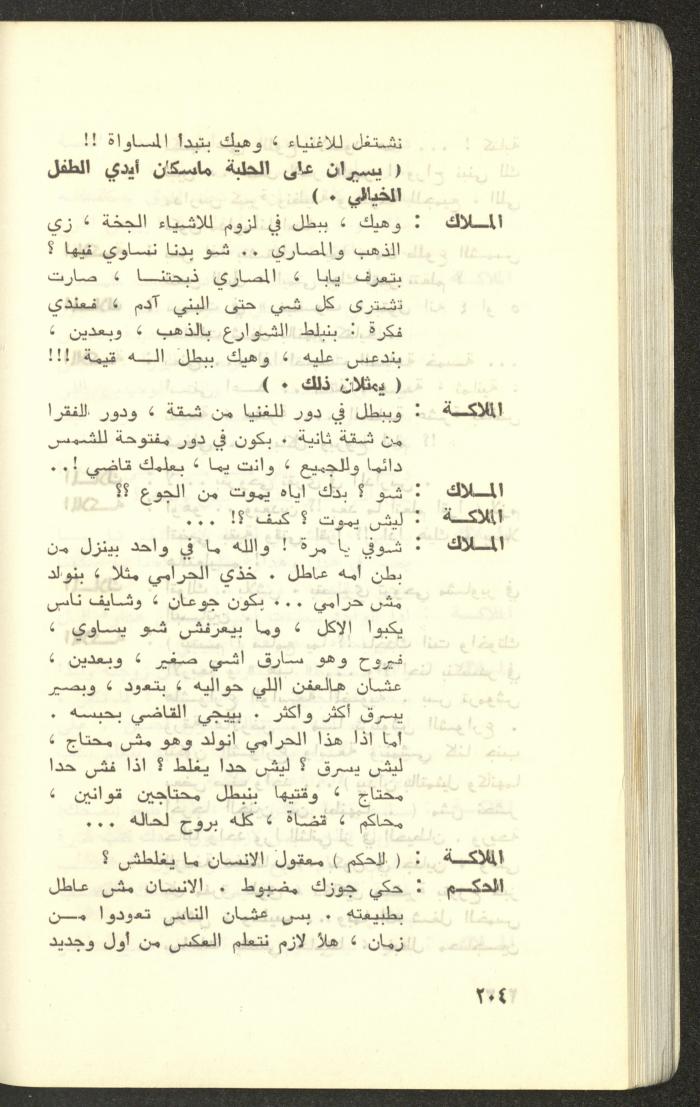 نشتغل للاغنياء ، وهيك بتبدأ المساواة !!
( يسيران على الحلبة ماسكان أيدي الطفل
الخيالي . )
الملاك : وهيك ، ببطل في لزوم للاشياء الجخة ، زي
الذهب والمصاري .. شو بدنا نساوي فيها ؟
بتعرف يابا ، المصاري ذبحتنا ، صارت
تشترى كل شي حتى البني آدم ، فعندي
فكرة : بنبلط الشوارع بالذهب ، وبعدين ،
بندعس عليه ، وهيك ببطل اله قيمة !!!
( يمثلان ذلك . )
الملاكة : وببطل في دور للغنيا من شقة ، ودور للفقرا
من شقة ثانية . بكون في دور مفتوحة للشمس
دائما وللجميع ، وانت يما ، بعلمك قاضي !..
الملاك : شو ؟ بدك اياه يموت من الجوع ؟؟
الملاكة : ليش يموت ؟ كيف ؟! ...
الملاك : شوفي يا مرة ! والله ما في واحد بينزل من
بطن أمه عاطل . خذي الحرامي مثلا ، بنولد
مش حرامي ... بكون جوعان ، وشايف ناس
يكبوا الاكل ، وما بيعرفش شو يساوي ،
فيروح وهو سارق اشي صغير ، وبعدين ،
عشان هالعفن اللي حواليه ، بتعود ، وبصير
يسرق أكثر وأكثر . بييجي القاضي بحبسه .
أما اذا هذا الحرامي انولد وهو مش محتاج ،
ليش يسرق ؟ ليش حدا يغلط ؟ اذا فش حدا
محتاج ، وقتيها بنبطل محتاجين قوانين ،
محاكم ، قضاة ، كله بروح لحاله ...
الملاكة : ( للحكم ) معقول الانسان ما يغلطش ؟
الحكم : حكي جوزك مضبوط . الانسان مش عاطل
بطبيعته . بس عشان الناس تعودوا من
زمان ، هلأ لازم نتعلم العكس من أول وجديد
٢٠٤